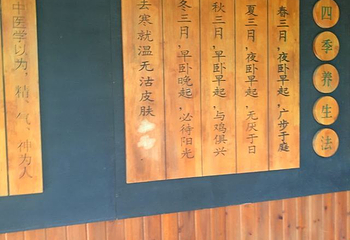 四季养生法
春三月，夜卧早起，广步于庭
夏三月，夜卧早起，无厌于日
秋三月，早卧早起，与鸡俱兴
冬三月，早卧晚起，必待阳光
去寒就温无沽皮肤．
中医学以为，精、气、神为人